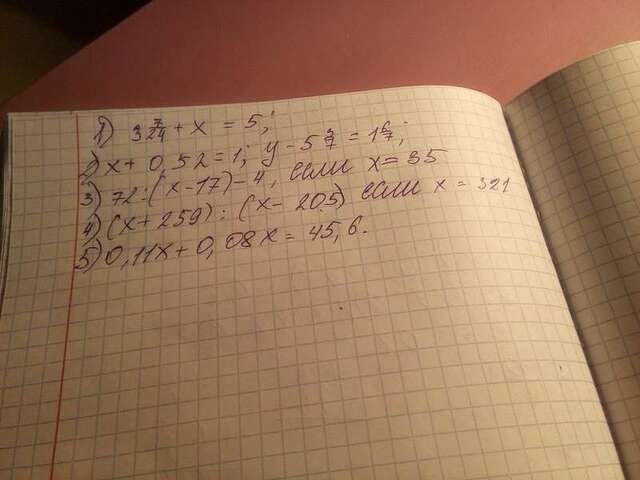 1) 3 7/24 + x = 5;
2) x + 0,52 = 1; y - 5 3/7 = 1 6/7;
3) 72:(x-17)-4, если x=35
4) (x+259):(x-205) если x = 321
5) 0,11x+0,08x = 45,6.